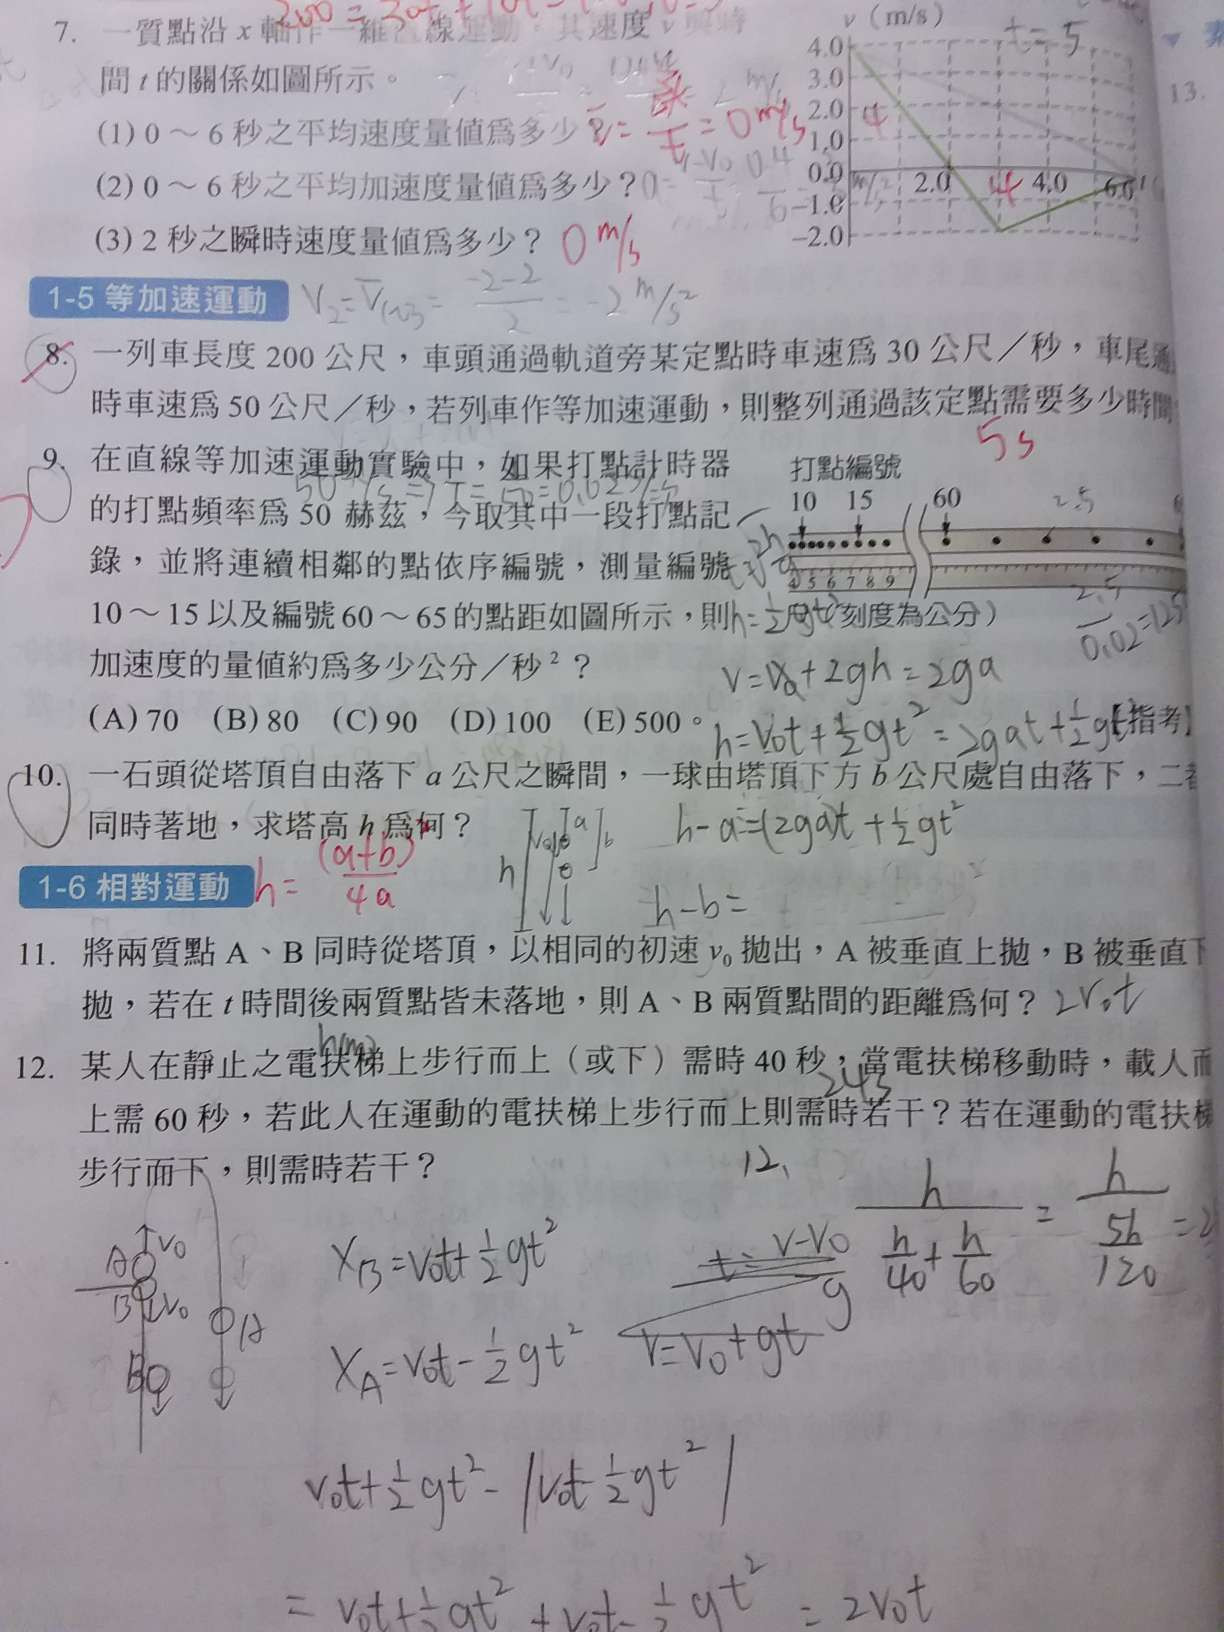 7. 一質點沿 x 軸作一維直線運動，其速度 v 與時
間 t 的關係如圖所示。
(1) 0～6 秒之平均速度量值為多少
= 0 m/s
(2) 0～6 秒之平均加速度量值為多少？
(3) 2 秒之瞬時速度量值為多少？ 0 m/s
v (m/s)
t=5
4.0
3.0
2.0
1.0
0.0
-1.0
-2.0
4
2.0 4 4.0 6.0
13.
1-5 等加速運動
V₂=V̄₁~₃= (-2-2)/2 = -2 m/s²
8. 一列車長度 200 公尺，車頭通過軌道旁某定點時車速為 30 公尺／秒，車尾通
時車速為 50 公尺／秒，若列車作等加速運動，則整列通過該定點需要多少時間
5s
9. 在直線等加速運動實驗中，如果打點計時器
的打點頻率為 50 赫茲，今取其中一段打點記
錄，並將連續相鄰的點依序編號，測量編號
10～15 以及編號 60～65 的點距如圖所示，則
加速度的量值約為多少公分／秒²？
(A) 70 (B) 80 (C) 90 (D) 100 (E) 500。
【指考】
打點編號
10 15 60
2.5
4 5 6 7 8 9
刻度為公分）
2.5/0.02=125
h=½gt²
+2gh=2ga
h=V₀t+½gt²=2gat+½gt²
10. 一石頭從塔頂自由落下 a 公尺之瞬間，一球由塔頂下方 b 公尺處自由落下，二者
同時著地，求塔高 h 為何？
h-a=(2ga)t+½gt²
h= (a+b)²/4a
h a b
h-b=
1-6 相對運動
11. 將兩質點 A、B 同時從塔頂，以相同的初速 v₀ 拋出，A 被垂直上拋，B 被垂直下
拋，若在 t 時間後兩質點皆未落地，則 A、B 兩質點間的距離為何？ 2V₀t
h(m)
12. 某人在靜止之電扶梯上步行而上（或下）需時 40 秒，當電扶梯移動時，載人而
24s
上需 60 秒，若此人在運動的電扶梯上步行而上則需時若干？若在運動的電扶梯
步行而下，則需時若干？
12.
h/(h/40+h/60) = h/(5h/120) =
A V₀
B V₀
A
B
X_B=V₀t+½gt²
t= (V-V₀)/g
X_A=V₀t-½gt²
V=V₀+gt
V₀t+½gt²-|V₀t-½gt²|
= V₀t+½gt²+V₀t-½gt² = 2V₀t